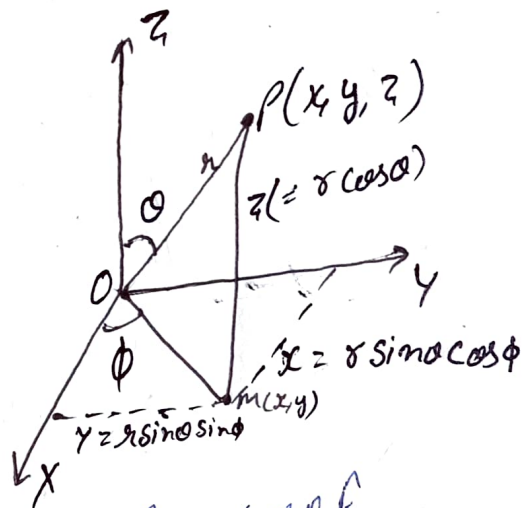 Z
P(x, y, z)
r
z(= r cosθ)
θ
O
Y
ϕ
x = r sinθ cosϕ
M(x,y)
y = r sinθ sinϕ
X